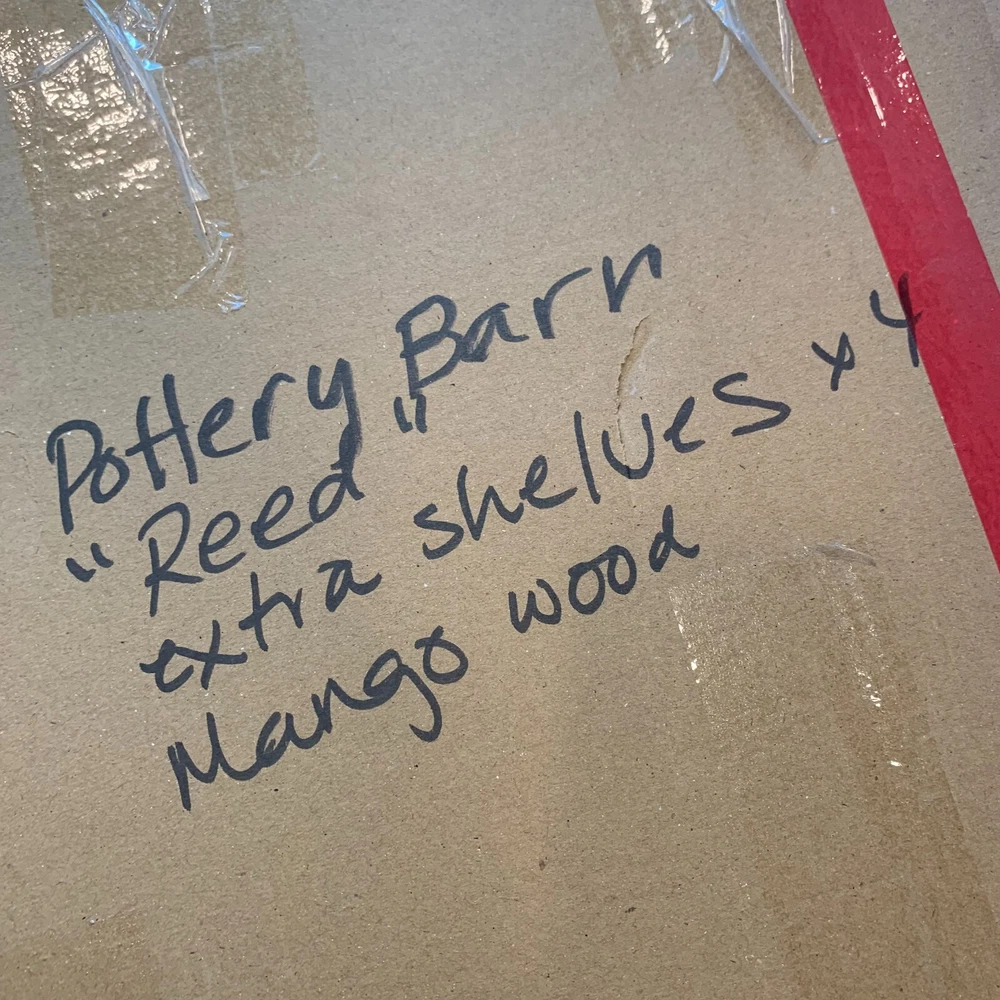 Pottery Barn
"Reed"
extra shelves x 4
Mango wood